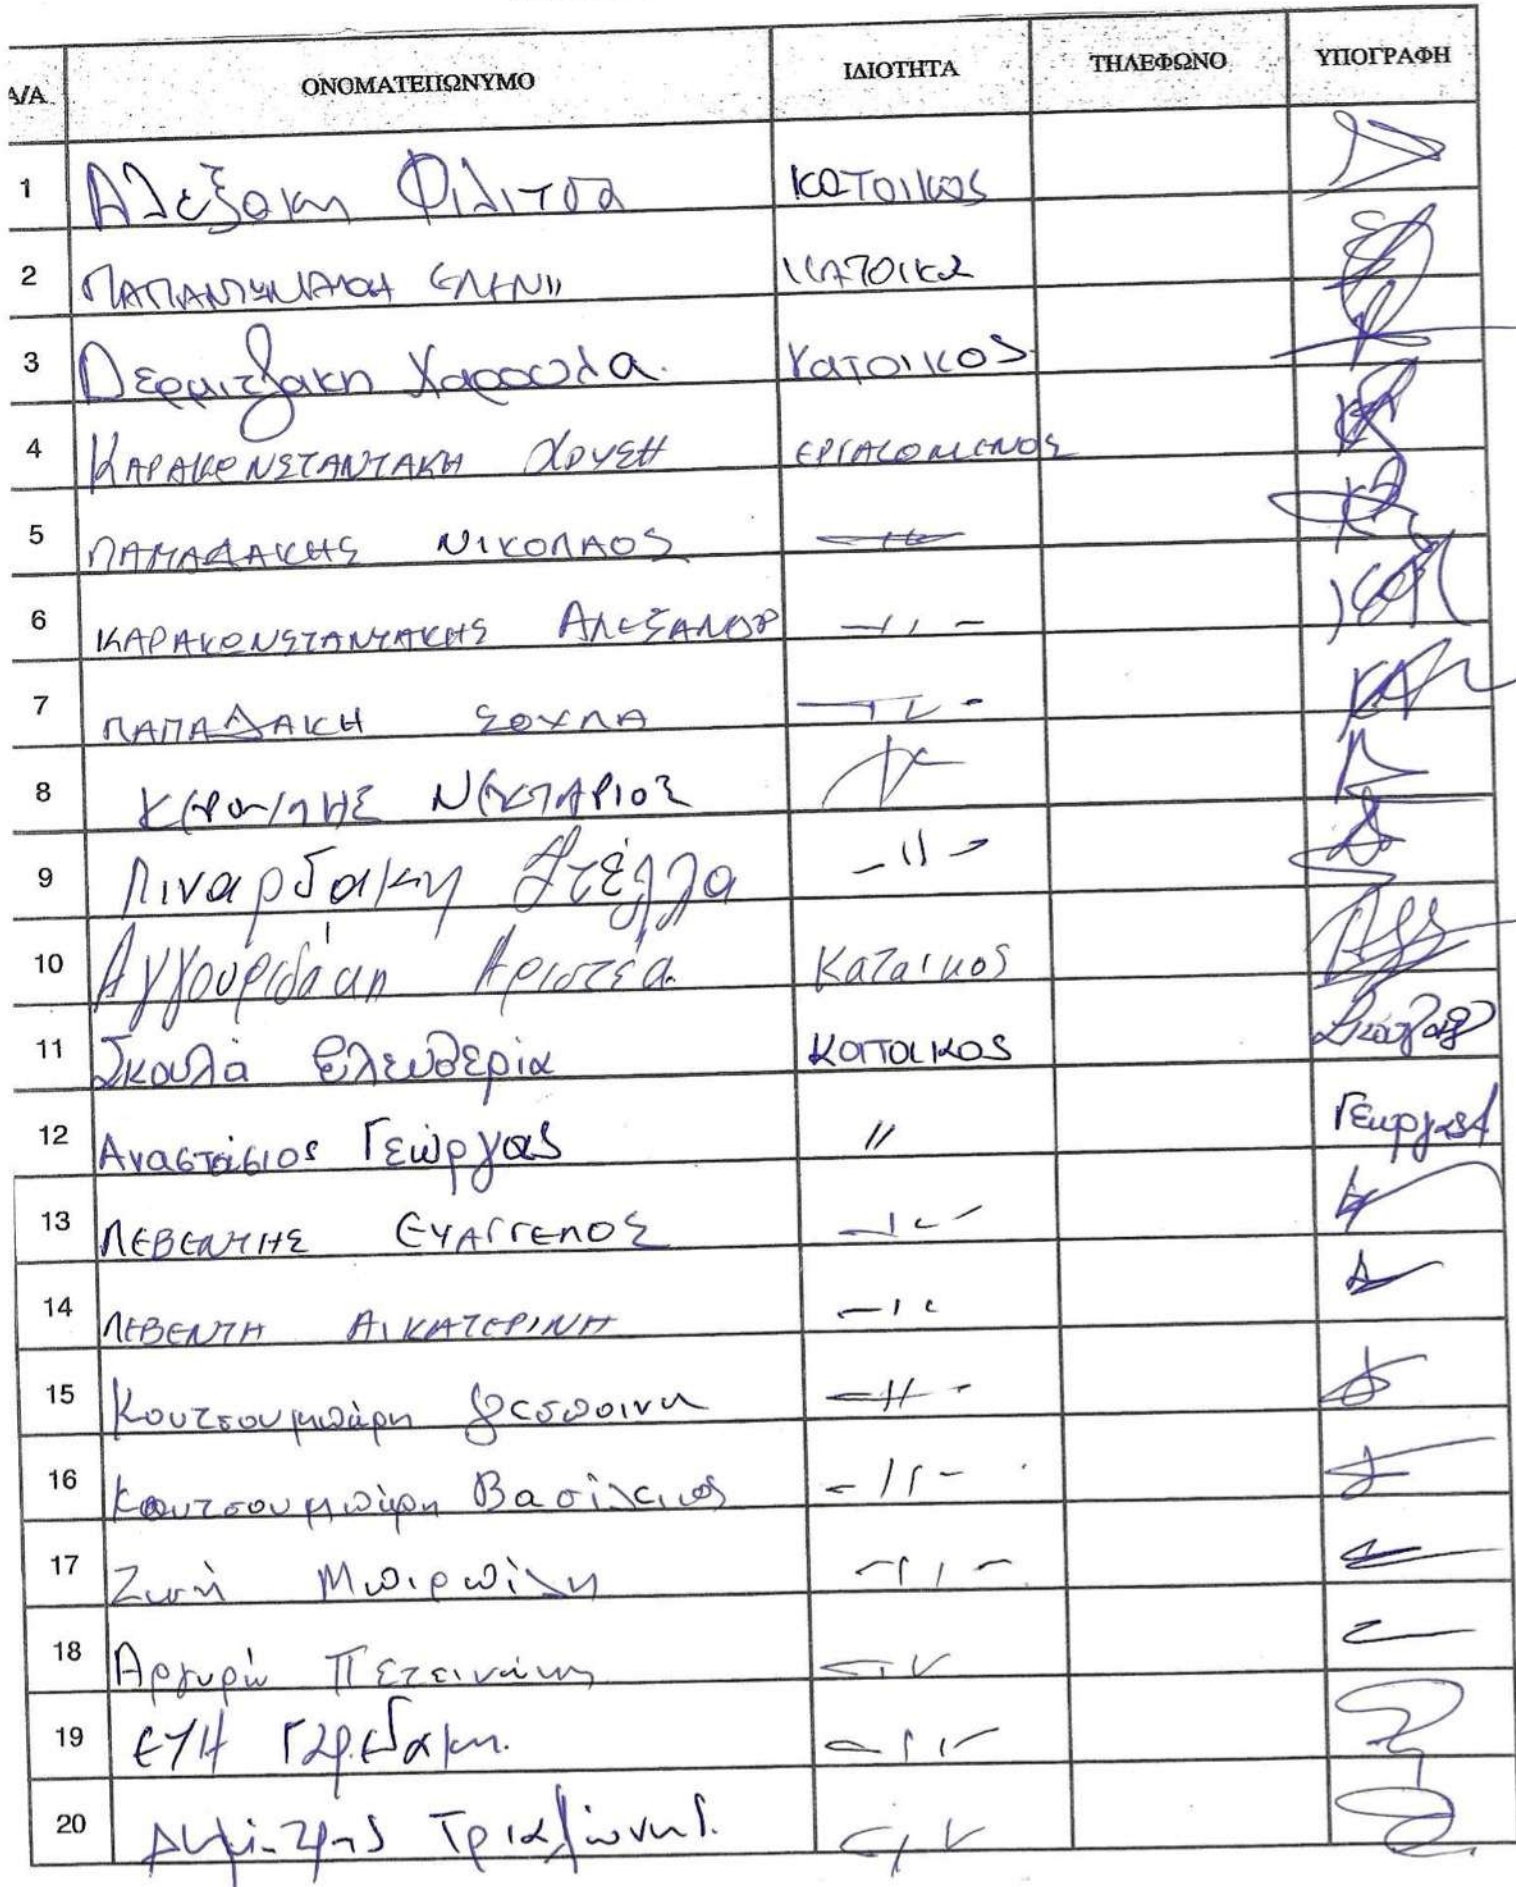 Α/Α ΟΝΟΜΑΤΕΠΩΝΥΜΟ ΙΔΙΟΤΗΤΑ ΤΗΛΕΦΩΝΟ ΥΠΟΓΡΑΦΗ
1 Αλεξακη Φιλιτσα κατοικος
2 ΕΛΕΝΗ ΚΑΤΟΙΚΟΣ
3 Δερμιτζακη Χαρουλα. Κατοικος
4 ΚΑΡΑΚΩΝΣΤΑΝΤΑΚΗ ΧΡΥΣΗ ΕΡΓΑΖΟΜΕΝΟΣ
5 ΠΑΠΑΔΑΚΗΣ ΝΙΚΟΛΑΟΣ -//-
6 ΚΑΡΑΚΩΝΣΤΑΝΤΑΚΗΣ ΑΛΕΞΑΝΔΡ -//-
7 ΠΑΠΑΔΑΚΗ ΣΟΥΛΑ -//-
8 ΝΕΚΤΑΡΙΟΣ
9 Λιναρδακη Στέλλα -//-
10 Αγγουριδάκη Αριστέα Κατοικος
11 Σκουλά Ελευθερία κατοικος
12 Αναστάσιος Γεώργας // Γεωργας Α
13 ΛΕΒΕΝΤΗΣ ΕΥΑΓΓΕΛΟΣ -//-
14 ΛΕΒΕΝΤΗ ΑΙΚΑΤΕΡΙΝΗ -//
15 Κουτσουμπάρη Δεσποινα -//-
16 Κουτσουμπάρη Βασίλειος -//-
17 Ζωή Μπιρπίλη -//-
18 Αργυρώ Πετεινάκη -//
19 ΕΥΗ -//-
20 Δημήτρης -//